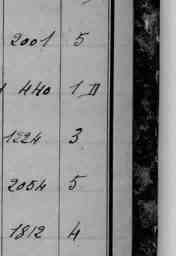 2001 5
440 1 II
1224 3
2054 5
1812 4